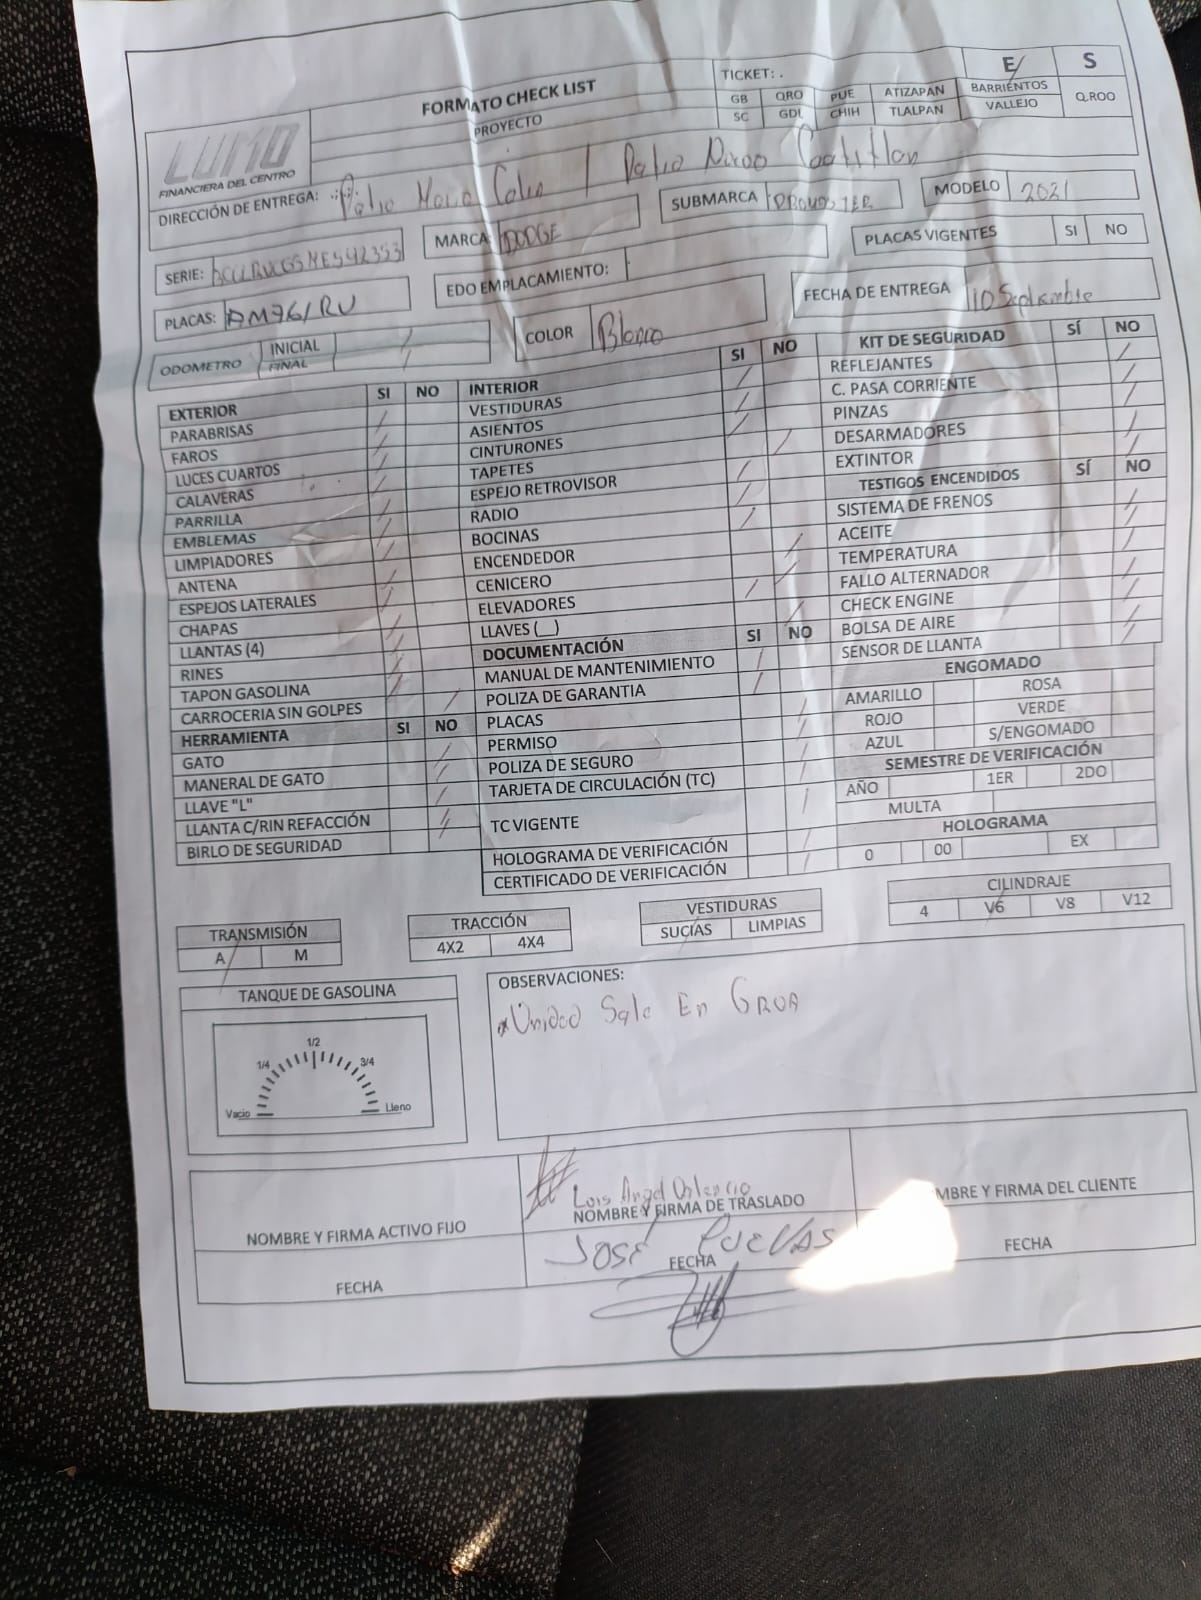 FORMATO CHECK LIST
TICKET: .
E/ S
LUMO
FINANCIERA DEL CENTRO
PROYECTO
GB QRO PUE ATIZAPAN BARRIENTOS Q.ROO
SC GDL CHIH TLALPAN VALLEJO
DIRECCIÓN DE ENTREGA: Patio
SERIE: MARCA: DODGE SUBMARCA MODELO 2021
PLACAS: EDO EMPLACAMIENTO: PLACAS VIGENTES SI NO
ODOMETRO INICIAL FINAL COLOR Blanco FECHA DE ENTREGA 10 Septiembre
EXTERIOR SI NO
PARABRISAS /
FAROS /
LUCES CUARTOS /
CALAVERAS /
PARRILLA /
EMBLEMAS /
LIMPIADORES /
ANTENA /
ESPEJOS LATERALES /
CHAPAS /
LLANTAS (4) /
RINES /
TAPON GASOLINA /
CARROCERIA SIN GOLPES /
HERRAMIENTA SI NO
GATO /
MANERAL DE GATO /
LLAVE "L" /
LLANTA C/RIN REFACCIÓN /
BIRLO DE SEGURIDAD
INTERIOR SI NO
VESTIDURAS /
ASIENTOS /
CINTURONES /
TAPETES /
ESPEJO RETROVISOR /
RADIO /
BOCINAS /
ENCENDEDOR /
CENICERO /
ELEVADORES /
LLAVES (__) /
DOCUMENTACIÓN SI NO
MANUAL DE MANTENIMIENTO /
POLIZA DE GARANTIA /
PLACAS /
PERMISO /
POLIZA DE SEGURO /
TARJETA DE CIRCULACIÓN (TC) /
TC VIGENTE /
HOLOGRAMA DE VERIFICACIÓN /
CERTIFICADO DE VERIFICACIÓN /
KIT DE SEGURIDAD SÍ NO
REFLEJANTES /
C. PASA CORRIENTE /
PINZAS /
DESARMADORES /
EXTINTOR /
TESTIGOS ENCENDIDOS SÍ NO
SISTEMA DE FRENOS /
ACEITE /
TEMPERATURA /
FALLO ALTERNADOR /
CHECK ENGINE /
BOLSA DE AIRE /
SENSOR DE LLANTA
ENGOMADO
AMARILLO ROSA
ROJO VERDE
AZUL S/ENGOMADO
SEMESTRE DE VERIFICACIÓN
AÑO 1ER 2DO
MULTA
HOLOGRAMA
0 00 EX
TRANSMISIÓN
A/ M
TRACCIÓN
4X2 4X4
VESTIDURAS
SUCIAS LIMPIAS
CILINDRAJE
4 V6 V8 V12
TANQUE DE GASOLINA
1/2
1/4 3/4
Vacio Lleno
OBSERVACIONES:
*Unidad Sale En GRUA
NOMBRE Y FIRMA ACTIVO FIJO
Luis Angel
NOMBRE Y FIRMA DE TRASLADO
MBRE Y FIRMA DEL CLIENTE
FECHA
JOSÉ CUEVAS
FECHA
FECHA